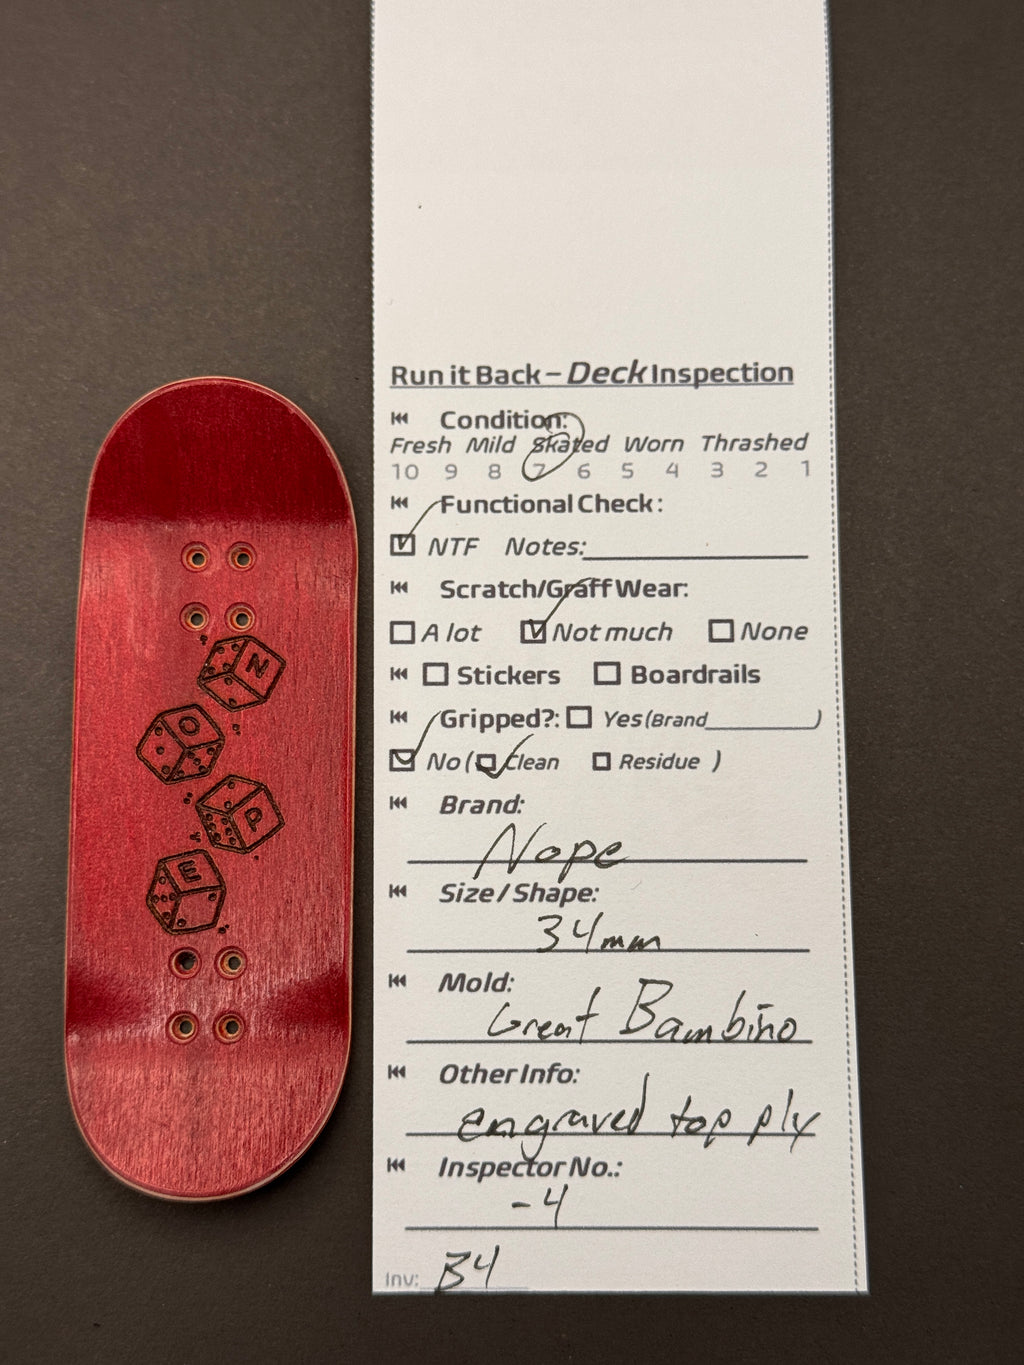 N
O
P
E
Run it Back – Deck Inspection
Condition:
Fresh Mild Skated Worn Thrashed
10 9 8 7 6 5 4 3 2 1
Functional Check:
NTF Notes:
Scratch/Graff Wear:
A lot Not much None
Stickers Boardrails
Gripped?: Yes (Brand )
No ( Clean Residue )
Brand:
Nope
Size / Shape:
34mm
Mold:
Great Bambino
Other Info:
engraved top ply
Inspector No.:
-4
Inv: B4